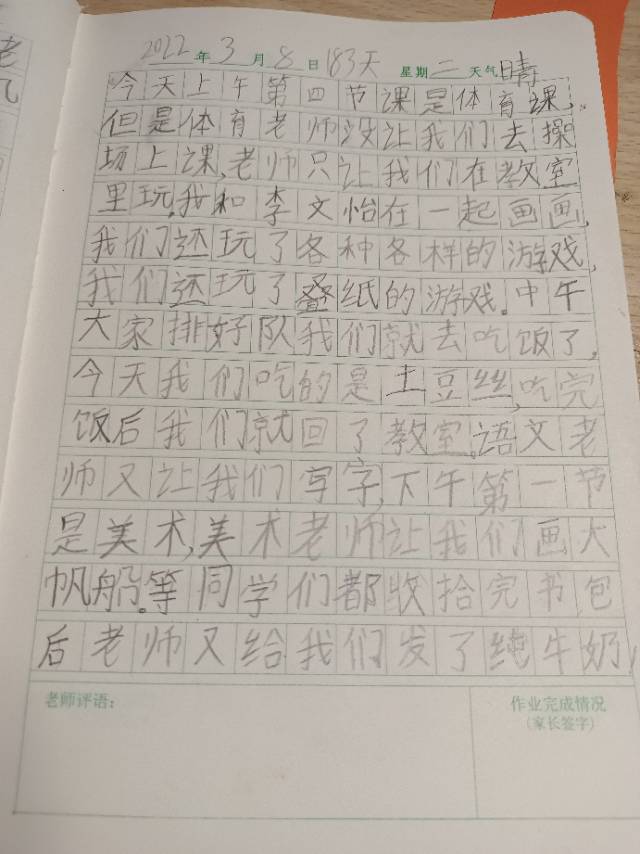 2022年3月8日 183天 星期二 天气晴
今天上午第四节课是体育课,
但是体育老师没让我们去操
场上课,老师只让我们在教室
里玩。我和李文怡在一起画画,
我们还玩了各种各样的游戏,
我们还玩了叠纸的游戏。中午
大家排好队我们就去吃饭了,
今天我们吃的是土豆丝,吃完
饭后我们就回了教室。语文老
师又让我们写字,下午第一节
是美术,美术老师让我们画大
帆船。等同学们都收拾完书包
后老师又给我们发了纯牛奶,
老师评语:
作业完成情况
(家长签字)